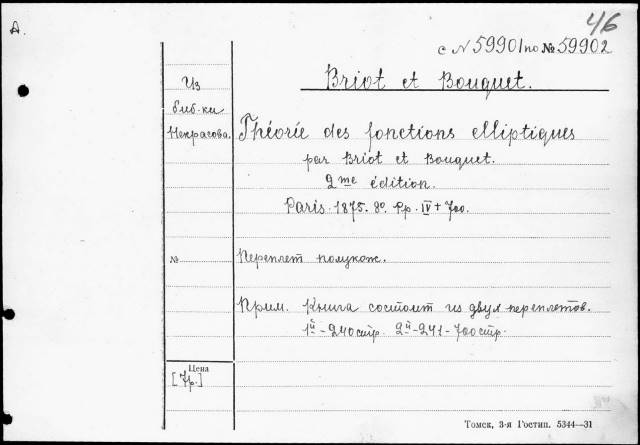 А.
46
с № 59901 по № 59902
Briot et Bouquet.
Из
биб-ки
Некрасова.
Théorie des fonctions elliptiques
par Briot et Bouquet.
2me édition.
Paris. 1875. 8º. Pp. IV + 700.
№
Переплет полукож.
Прим. Книга состоит из двух переплетов.
1й - 240 стр. 2й - 241 - 700 стр.
Цена
[7р.]
Томск, 3-я Гостип. 5344—31